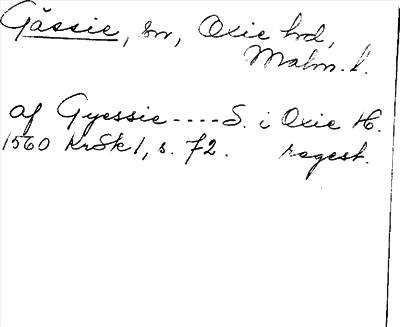 Gässie, sn, Oxie hrd,
Malm. l.
af Gyessie ---- S. i Oxie H.
1560 KrSk 1, s. 72. regest.